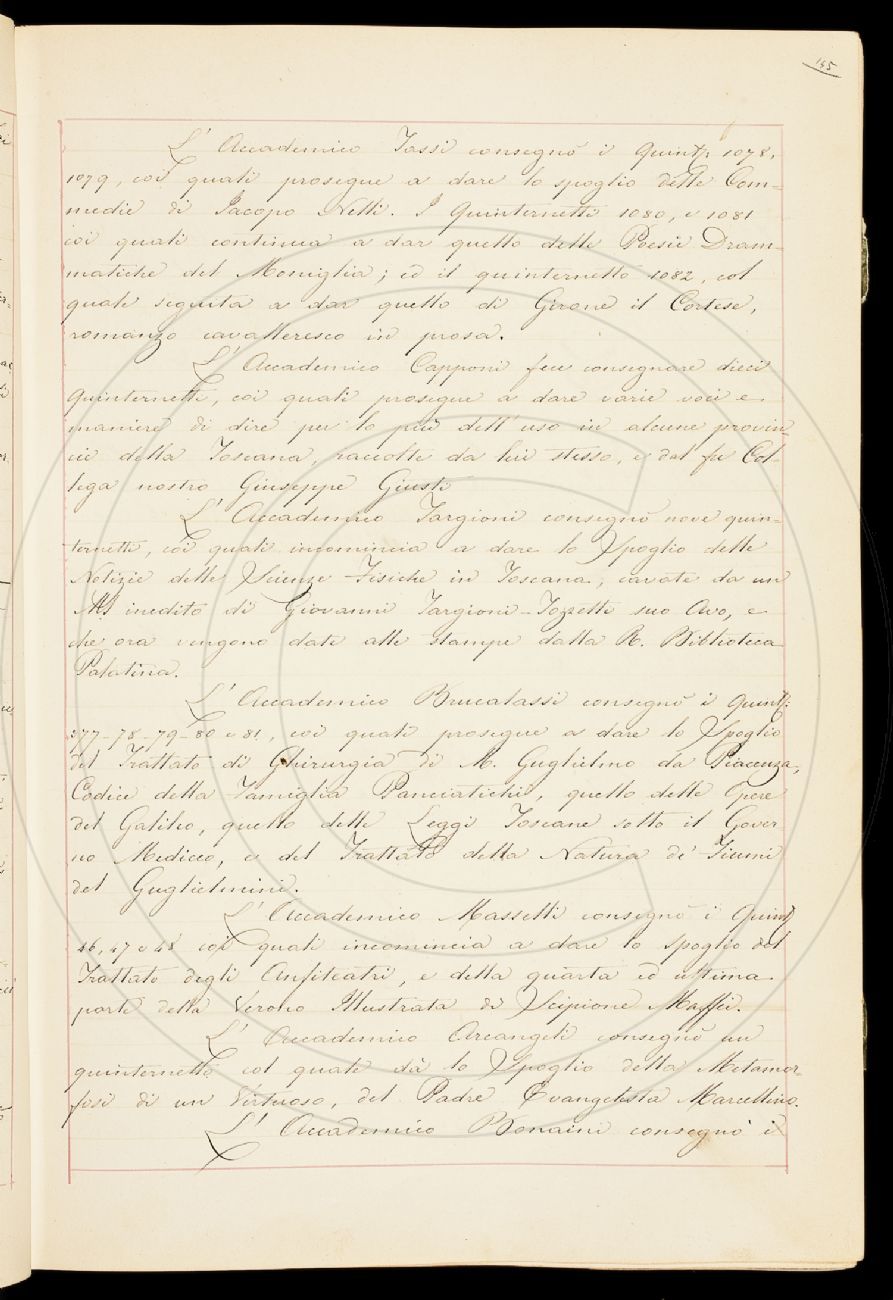 145
L' Accademico Tassi consegnò i Quint.i 1078,
1079, coi quali prosegue a dare lo spoglio delle Com-
medie di Jacopo Nelli. I Quinternetti 1080, e 1081
coi quali continua a dar quello delle Poesie Dram-
matiche del Moniglia; ed il quinternetto 1082, col
quale seguita a dar quello di Girone il Cortese,
romanzo cavalleresco in prosa.
L' Accademico Capponi fece consegnare dieci
quinternetti, coi quali prosegue a dare varie voci e
maniere di dire per lo più dell' uso in alcune provin
cie della Toscana, raccolte da lui stesso, e dal fu Col-
lega nostro Giuseppe Giusti
L' Accademico Targioni consegnò nove quin-
ternetti, coi quali incomincia a dare lo Spoglio delle
Notizie delle Scienze Fisiche in Toscana, cavate da un
MS inedito di Giovanni Targioni-Tozzetti suo Avo, e
che ora vengono date alle stampe dalla R. Biblioteca
Palatina.
L' Accademico Brucalassi consegnò i Quint:
377-78-79-80 e 81, coi quali prosegue a dare lo Spoglio
del Trattato di Chirurgia di M. Guglielmo da Piacenza,
Codice della Famiglia Panciatichi, quello delle Opere
del Galileo, quello delle Leggi Toscane sotto il Gover
no Mediceo, e del Trattato della Natura de' Fiumi
del Guglielmini.
L' Accademico Masselli consegnò i Quint
46, 47 e 48 coi quali incomincia a dare lo spoglio del
Trattato degli Anfiteatri, e della quarta ed ultima
parte della Verona Illustrata di Scipione Maffei.
L' Accademico Arcangeli consegnò un
quinternetto col quale dà lo Spoglio della Metamor-
fosi di un Virtuoso, del Padre Evangelista Marcellino.
L' Accademico Bonaini consegnò il